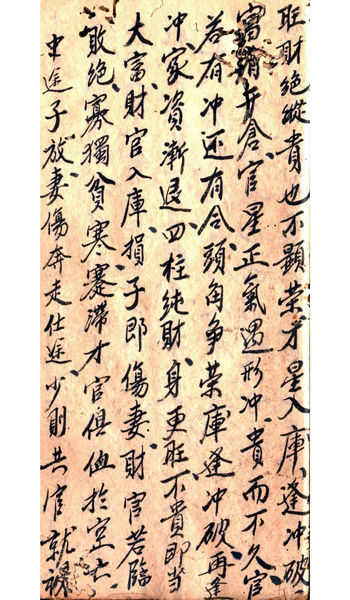 旺財絕縱貴也不顯荣才星入庫逢冲破
富翁弁倉官星正氣遇形冲貴而不久官
若有冲还有合頭角争荣庫逢冲破再逢
冲家資漸退四柱純財身更旺不貴即當
大富財官入庫損子即傷妻財官若臨
敗絕寡獨貧寒蹇滯才官俱值於空亡
中途子放妻傷奔走仕途少則其官就祿